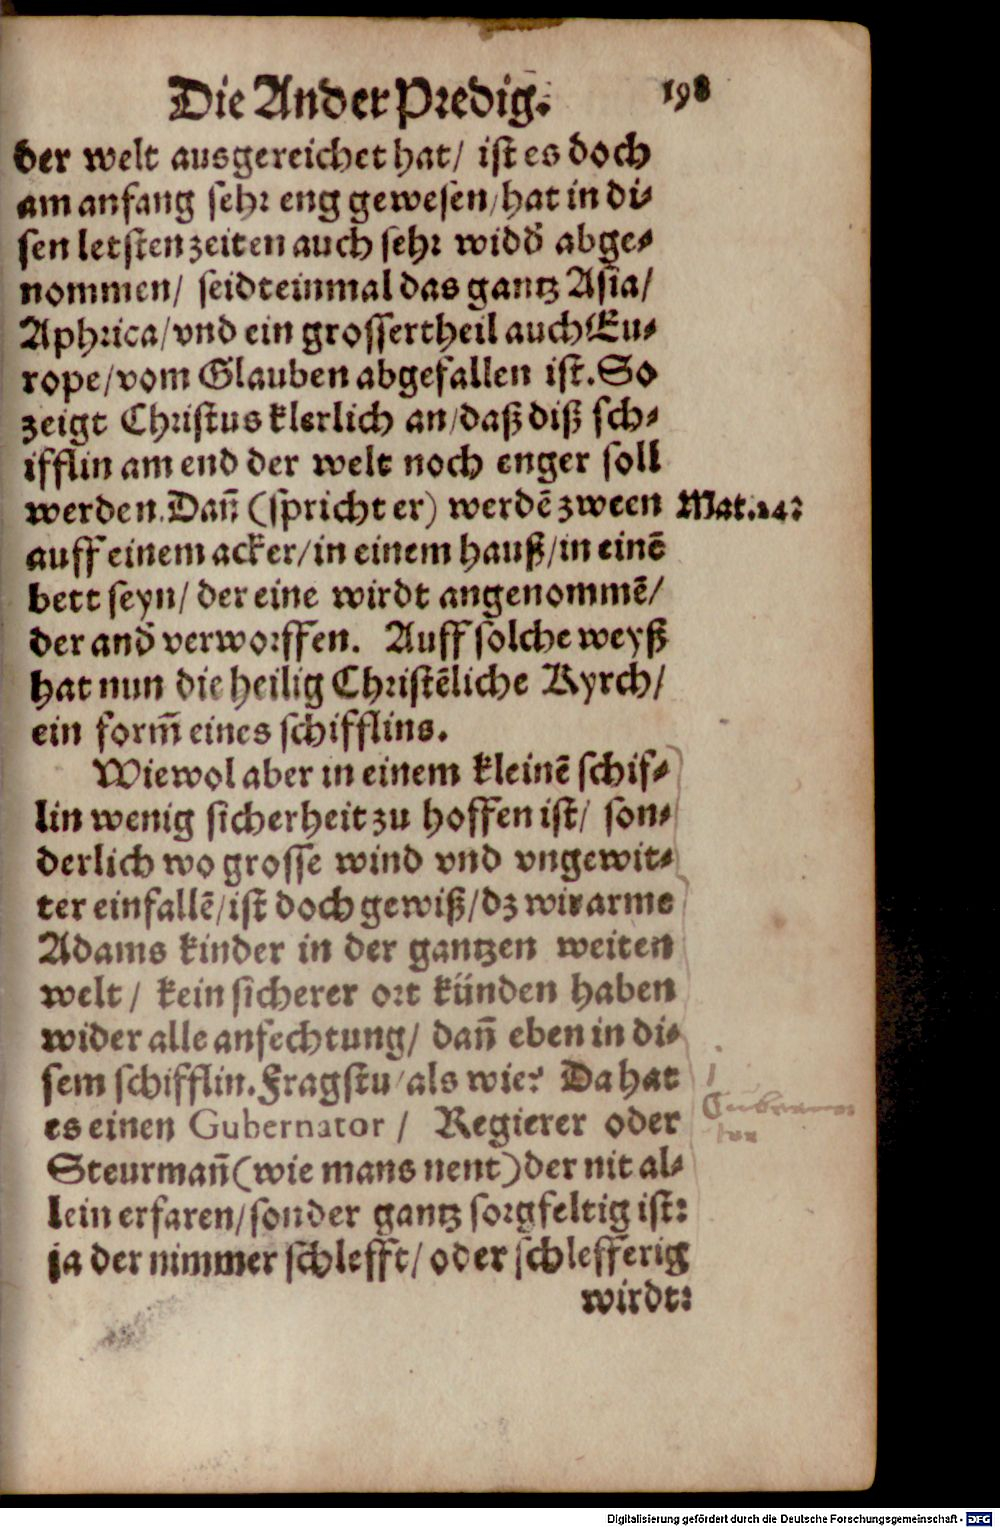 Die Ander Predig. 198
der welt ausgereichet hat/ ist es doch
am anfang sehr eng gewesen/hat in di⸗
sen letsten zeiten auch sehr widd̄ abge⸗
nommen/ seidteinmal das gantz Asia/
Aphrica/vnd ein grossertheil auch Eu⸗
rope/vom Glauben abgefallen ist. So
zeigt Christus klerlich an/daß diß sch⸗
ifflin am end der welt noch enger soll
werden. Dañ (spricht er) werdē zween Mat. 24:
auff einem acker/in einem hauß/in einē
bett seyn/ der eine wirdt angenommē/
der and̄ verworffen. Auff solche weyß
hat nun die heilig Christēliche Kyrch/
ein form̃ eines schifflins.
Wiewol aber in einem kleinē schif⸗
lin wenig sicherheit zu hoffen ist/ son⸗
derlich wo grosse wind vnd vngewit⸗
ter einfallē/ist doch gewiß/dz wir arme
Adams kinder in der gantzen weiten
welt/ kein sicherer ort künden haben
wider alle anfechtung/ dañ eben in di⸗
sem schifflin. Fragstu/als wie? Da hat
es einen Gubernator/ Regierer oder
Gubernator
Steurmañ (wie mans nent) der nit al⸗
lein erfaren/sonder gantz sorgfeltig ist:
ja der nimmer schlefft/ oder schlefferig
wirdt:
Digitalisierung gefördert durch die Deutsche Forschungsgemeinschaft - DFG